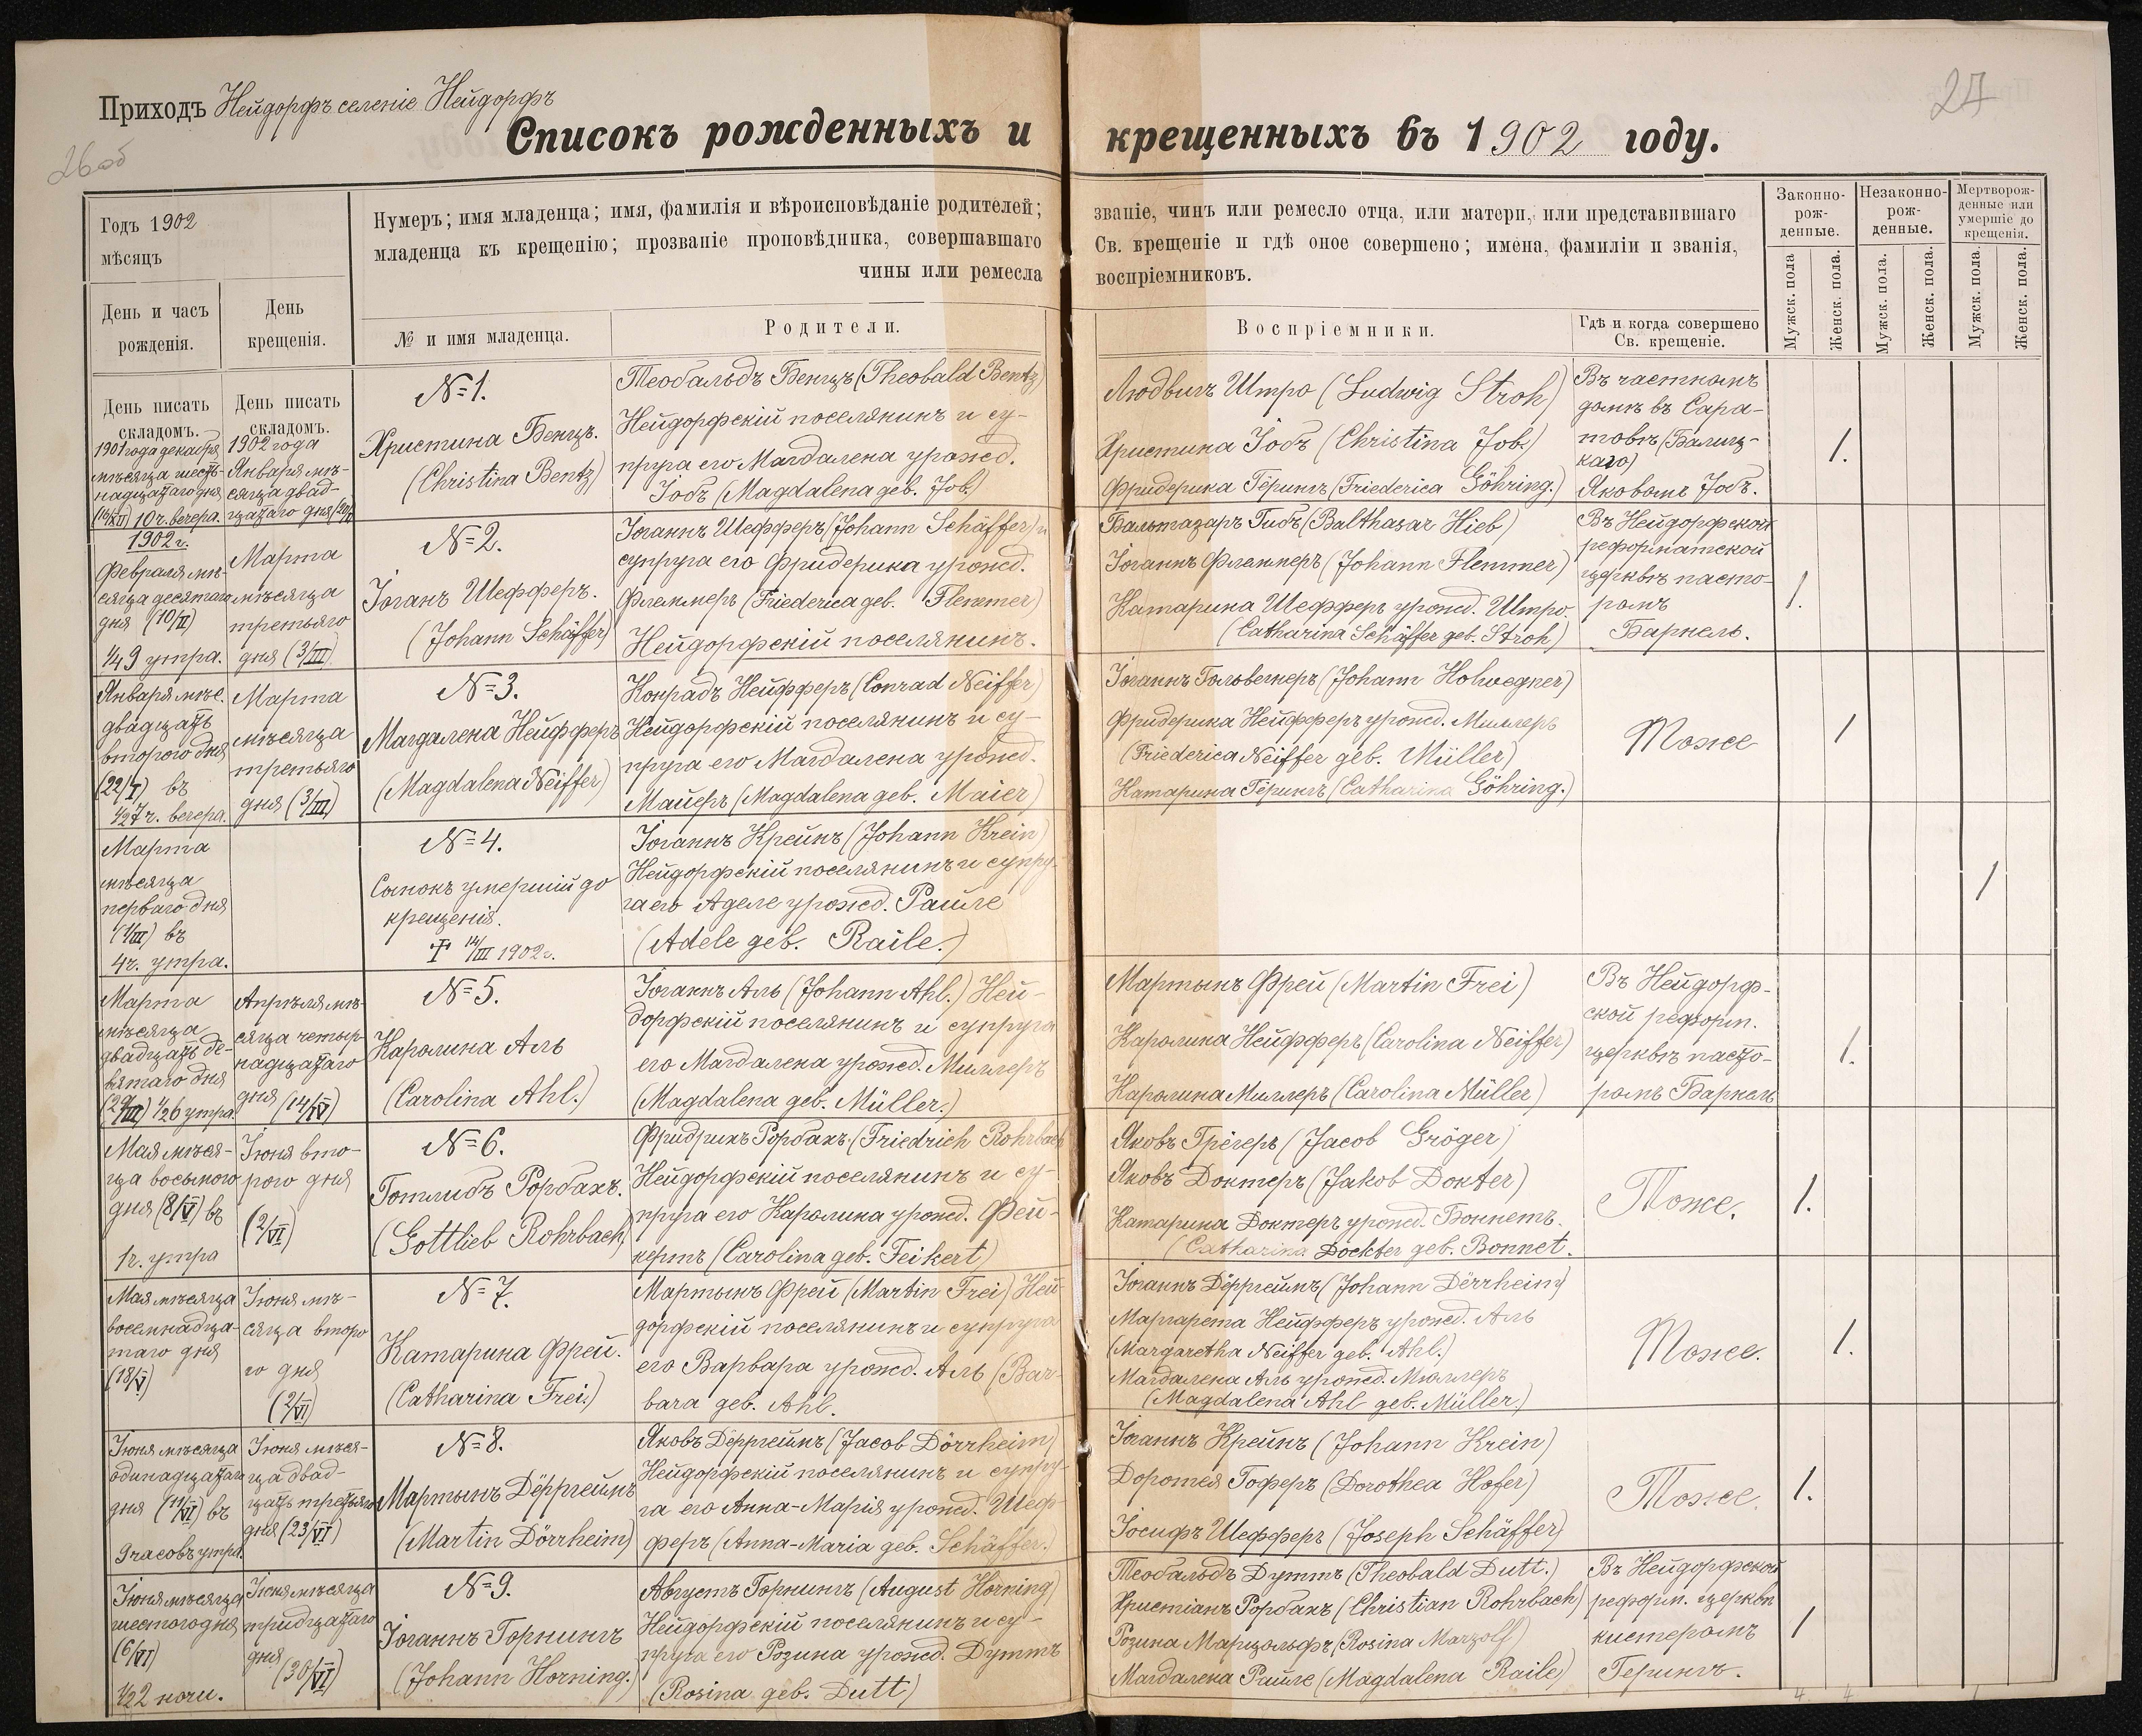 Приходъ Нейдорфъ селеніе Нейдорфъ
26об
27
Списокъ рожденныхъ и крещенныхъ въ 1902 году.
Годъ 1902
мѣсяцъ
День и часъ рожденія.
День крещенія.
Нумеръ; имя младенца; имя, фамилія и вѣроисповѣданіе родителей; званіе, чинъ или ремесло отца, или матери, или представившаго
младенца къ крещенію; прозваніе проповѣдника, совершавшаго Св. крещеніе и гдѣ оное совершено; имена, фамиліи и званія,
чины или ремесла воспріемниковъ.
№ и имя младенца.
Родители.
Воспріемники.
Гдѣ и когда совершено
Св. крещеніе.
Законно-
рож-
денные.
Незаконно-
рож-
денные.
Мертворож-
денные или
умершіе до
крещенія.
Мужск. пола
Женск. пола.
Мужск. пола.
Женск. пола.
Мужск. пола.
Женск. пола.
День писать
складомъ.
1901 года декабря
мѣсяца шест-
надцатаго дня
(16/XII) 10 ч. вечера.
День писать
складомъ.
1902 года
Января мѣ-
сяца двад-
цатаго дня (20/I)
№ 1.
Христина Бенцъ.
(Christina Bentz)
Теобальдъ Бенцъ (Theobald Bentz)
Нейдорфскій поселянинъ и су-
пруга его Магдалена урожд.
Іобъ (Magdalena geb. Job.)
Людвигъ Штро (Ludwig Stroh)
Христина Іобъ (Christina Job.)
Фридерика Гёрингъ (Friederica Göhring.)
Въ частномъ
домѣ въ Сара-
товѣ (Балиц-
каго)
Яковомъ Іобъ.
1.
1902 г.
Февраля мѣ-
сяца десятаго
дня (10/II)
1/4 9 утра.
Марта
мѣсяца
третьяго
дня (3/III)
№ 2.
Іоганъ Шефферъ.
(Johann Schäffer)
Іоганнъ Шефферъ (Johann Schäffer) и
супруга его Фридерика урожд.
Флеммеръ (Friederica geb. Flemmer)
Нейдорфскій поселянинъ.
Бальтазаръ Гибъ (Balthasar Hieb)
Іоганнъ Флеммеръ (Johann Flemmer)
Катарина Шефферъ урожд. Штро.
(Catharina Schäffer geb. Stroh)
Въ Нейдорфской
реформатской
церквѣ пасто-
ромъ
Баркель.
1.
Января мѣс.
двадцать
второго дня
(22/I) въ
1/2 7 ч. вечера.
Марта
мѣсяца
третьяго
дня (3/III)
№ 3.
Магдалена Нейфферъ
(Magdalena Neiffer)
Конрадъ Нейфферъ (Conrad Neiffer)
Нейдорфскій поселянинъ и су-
пруга его Магдалена урожд.
Майеръ (Magdalena geb. Maier)
Іоганнъ Гольвегнеръ (Johann Holwegner)
Фридерика Нейфферъ урожд. Миллеръ
(Friederica Neiffer geb. Müller)
Катарина Гёрингъ (Catharina Göhring.)
Тоже
1
Марта
мѣсяца
перваго дня
(1/III) въ
4 ч. утра.
№ 4.
Сынокъ умершій до
крещенія.
† 14/III 1902 г.
Іоганнъ Крейнъ (Johann Krein)
Нейдорфскій поселянинъ и супру-
га его Аделе урожд. Райле
(Adele geb. Raile.)
1
Марта
мѣсяца
двадцать де-
вятаго дня
(29/III) 1/2 6 утра.
Апрѣля мѣ-
сяца четыр-
надцатаго
дня (14/IV)
№ 5.
Каролина Аль
(Carolina Ahl.)
Іоганнъ Аль (Johann Ahl.) Ней-
дорфскій поселянинъ и супруга
его Магдалена урожд. Миллеръ
(Magdalena geb. Müller.)
Мартынъ Фрей (Martin Frei)
Каролина Нейфферъ (Carolina Neiffer)
Каролина Миллеръ (Carolina Müller)
Въ Нейдорф-
ской реформ.
церквѣ пасто-
ромъ Баркель
1.
Мая мѣся-
ца восьмого
дня (8/V) въ
1 ч. утра
Іюня вто-
рого дня
(2/VI)
№ 6.
Готлибъ Рорбахъ.
(Gottlieb Rohrbach)
Фридрихъ Рорбахъ (Friedrich Rohrbach
Нейдорфскій поселянинъ и су-
пруга его Каролина урожд. Фей-
кертъ (Carolina geb. Feikert)
Яковъ Грёгеръ (Jacob Gröger)
Яковъ Доктеръ (Jakob Dokter)
Катарина Доктеръ урожд. Боннетъ.
(Catharina Dockter geb. Bonnet.
Тоже.
1.
Мая мѣсяца
восемнадца-
таго дня
(18/V)
Іюня мѣ-
сяца второ
го дня
(2/VI)
№ 7.
Катарина Фрей.
(Catharina Frei.)
Мартынъ Фрей (Martin Frei) Ней-
дорфскій поселянинъ и супруга
его Варвара урожд. Аль (Bar-
bara geb. Ahl.
Іоганнъ Дёргеймъ (Johann Dërrheim)
Маргарета Нейфферъ урожд. Аль
(Margaretha Neiffer geb. Ahl.)
Магдалена Аль урожд. Миллеръ
(Magdalena Ahl geb. Müller.)
Тоже.
1.
Іюня мѣсяца
одинадцатаго
дня (11/VI) въ
9 часовъ утра.
Іюня мѣся-
ца двад-
цать третьяго
дня (23/VI)
№ 8.
Мартынъ Дёрргеймъ
(Martin Dörrheim)
Яковъ Дёрргеймъ (Jacob Dörrheim)
Нейдорфскій поселянинъ и супру-
га его Анна-Марія урожд. Шеф-
феръ (Anna-Maria geb. Schäffer.)
Іоганнъ Крейнъ (Johann Krein)
Доротея Гоферъ (Dorothea Hofer)
Іосифъ Шефферъ (Joseph Schäffer)
Тоже.
1.
Іюня мѣсяца
шестого дня
(6/VI)
1/2 2 ночи.
Іюня мѣсяца
тридцатаго
дня
(30/VI)
№ 9.
Іоганнъ Горнингъ
(Johann Horning.)
Августъ Горнингъ (August Horning)
Нейдорфскій поселянинъ и су-
пруга его Розина урожд. Дуттъ
(Rosina geb. Dutt)
Теобальдъ Дуттъ (Theobald Dutt.)
Христіанъ Рорбахъ (Christian Rohrbach)
Розина Марцольфъ (Rosina Marzolf)
Магдалена Райле (Magdalena Raile)
Въ Нейдорфской
реформ. церкви
кистеромъ
Герингъ.
1
4 4 1